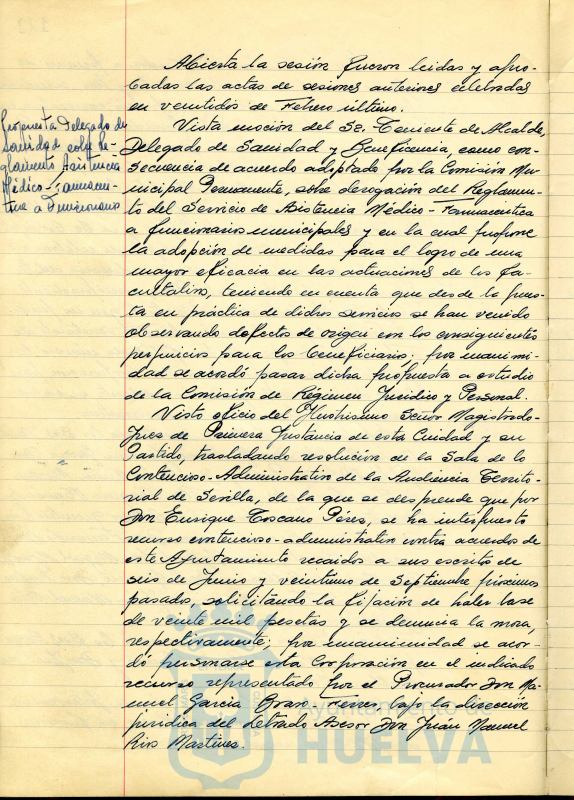 Abierta la sesión fueron leidas y apro-
badas las actas de sesiones anteriores celebradas
en veintidos de Febrero último.
Propuesta Delegado de
Sanidad sobre Re-
glamento Asistencia
Médico-Farmaceu-
tica a Funcionarios
Vista moción del Sr. Teniente de Alcalde,
Delegado de Sanidad y Beneficencia, como con-
secuencia de acuerdo adoptado por la Comisión Mu-
nicipal Permanente, sobre derogación del Reglamen-
to del Servicio de Asistencia Médico-Farmaceutica
a funcionarios municipales y en la cual propone
la adopción de medidas para el logro de una
mayor eficacia en las actuaciones de los fa-
cultativos, teniendo en cuenta que desde la pues-
ta en práctica de dichos servicios se han venido
observando defectos de origen con los consiguientes
perjuicios para los beneficiarios; por unanimi-
dad se acordó pasar dicha propuesta a estudio
de la Comisión de Régimen Juridico y Personal.
Visto oficio del Ilustrisimo Señor Magistrado-
Juez de Primera Instancia de esta Ciudad y su
Partido, trasladando resolución de la Sala de lo
Contencioso-Administrativo de la Audiencia Territo-
rial de Sevilla, de la que se desprende que por
Don Enrique Toscano Pérez, se ha interpuesto
recurso contencioso-administrativo contra acuerdos de
este Ayuntamiento recaidos a sus escritos de
seis de Junio y veintiuno de Septiembre próximos
pasados, solicitando la fijación de haber base
de veinte mil pesetas y se denuncia la mora,
respectivamente; por unanimidad se acor-
dó personarse esta Corporación en el indicado
recurso representado por el Procurador Don Ma-
nuel Garcia Bravo-Ferrer, bajo la dirección
juridica del Letrado Asesor Don Juán Manuel
Rios Martinez.
Ayuntamiento de
HUELVA